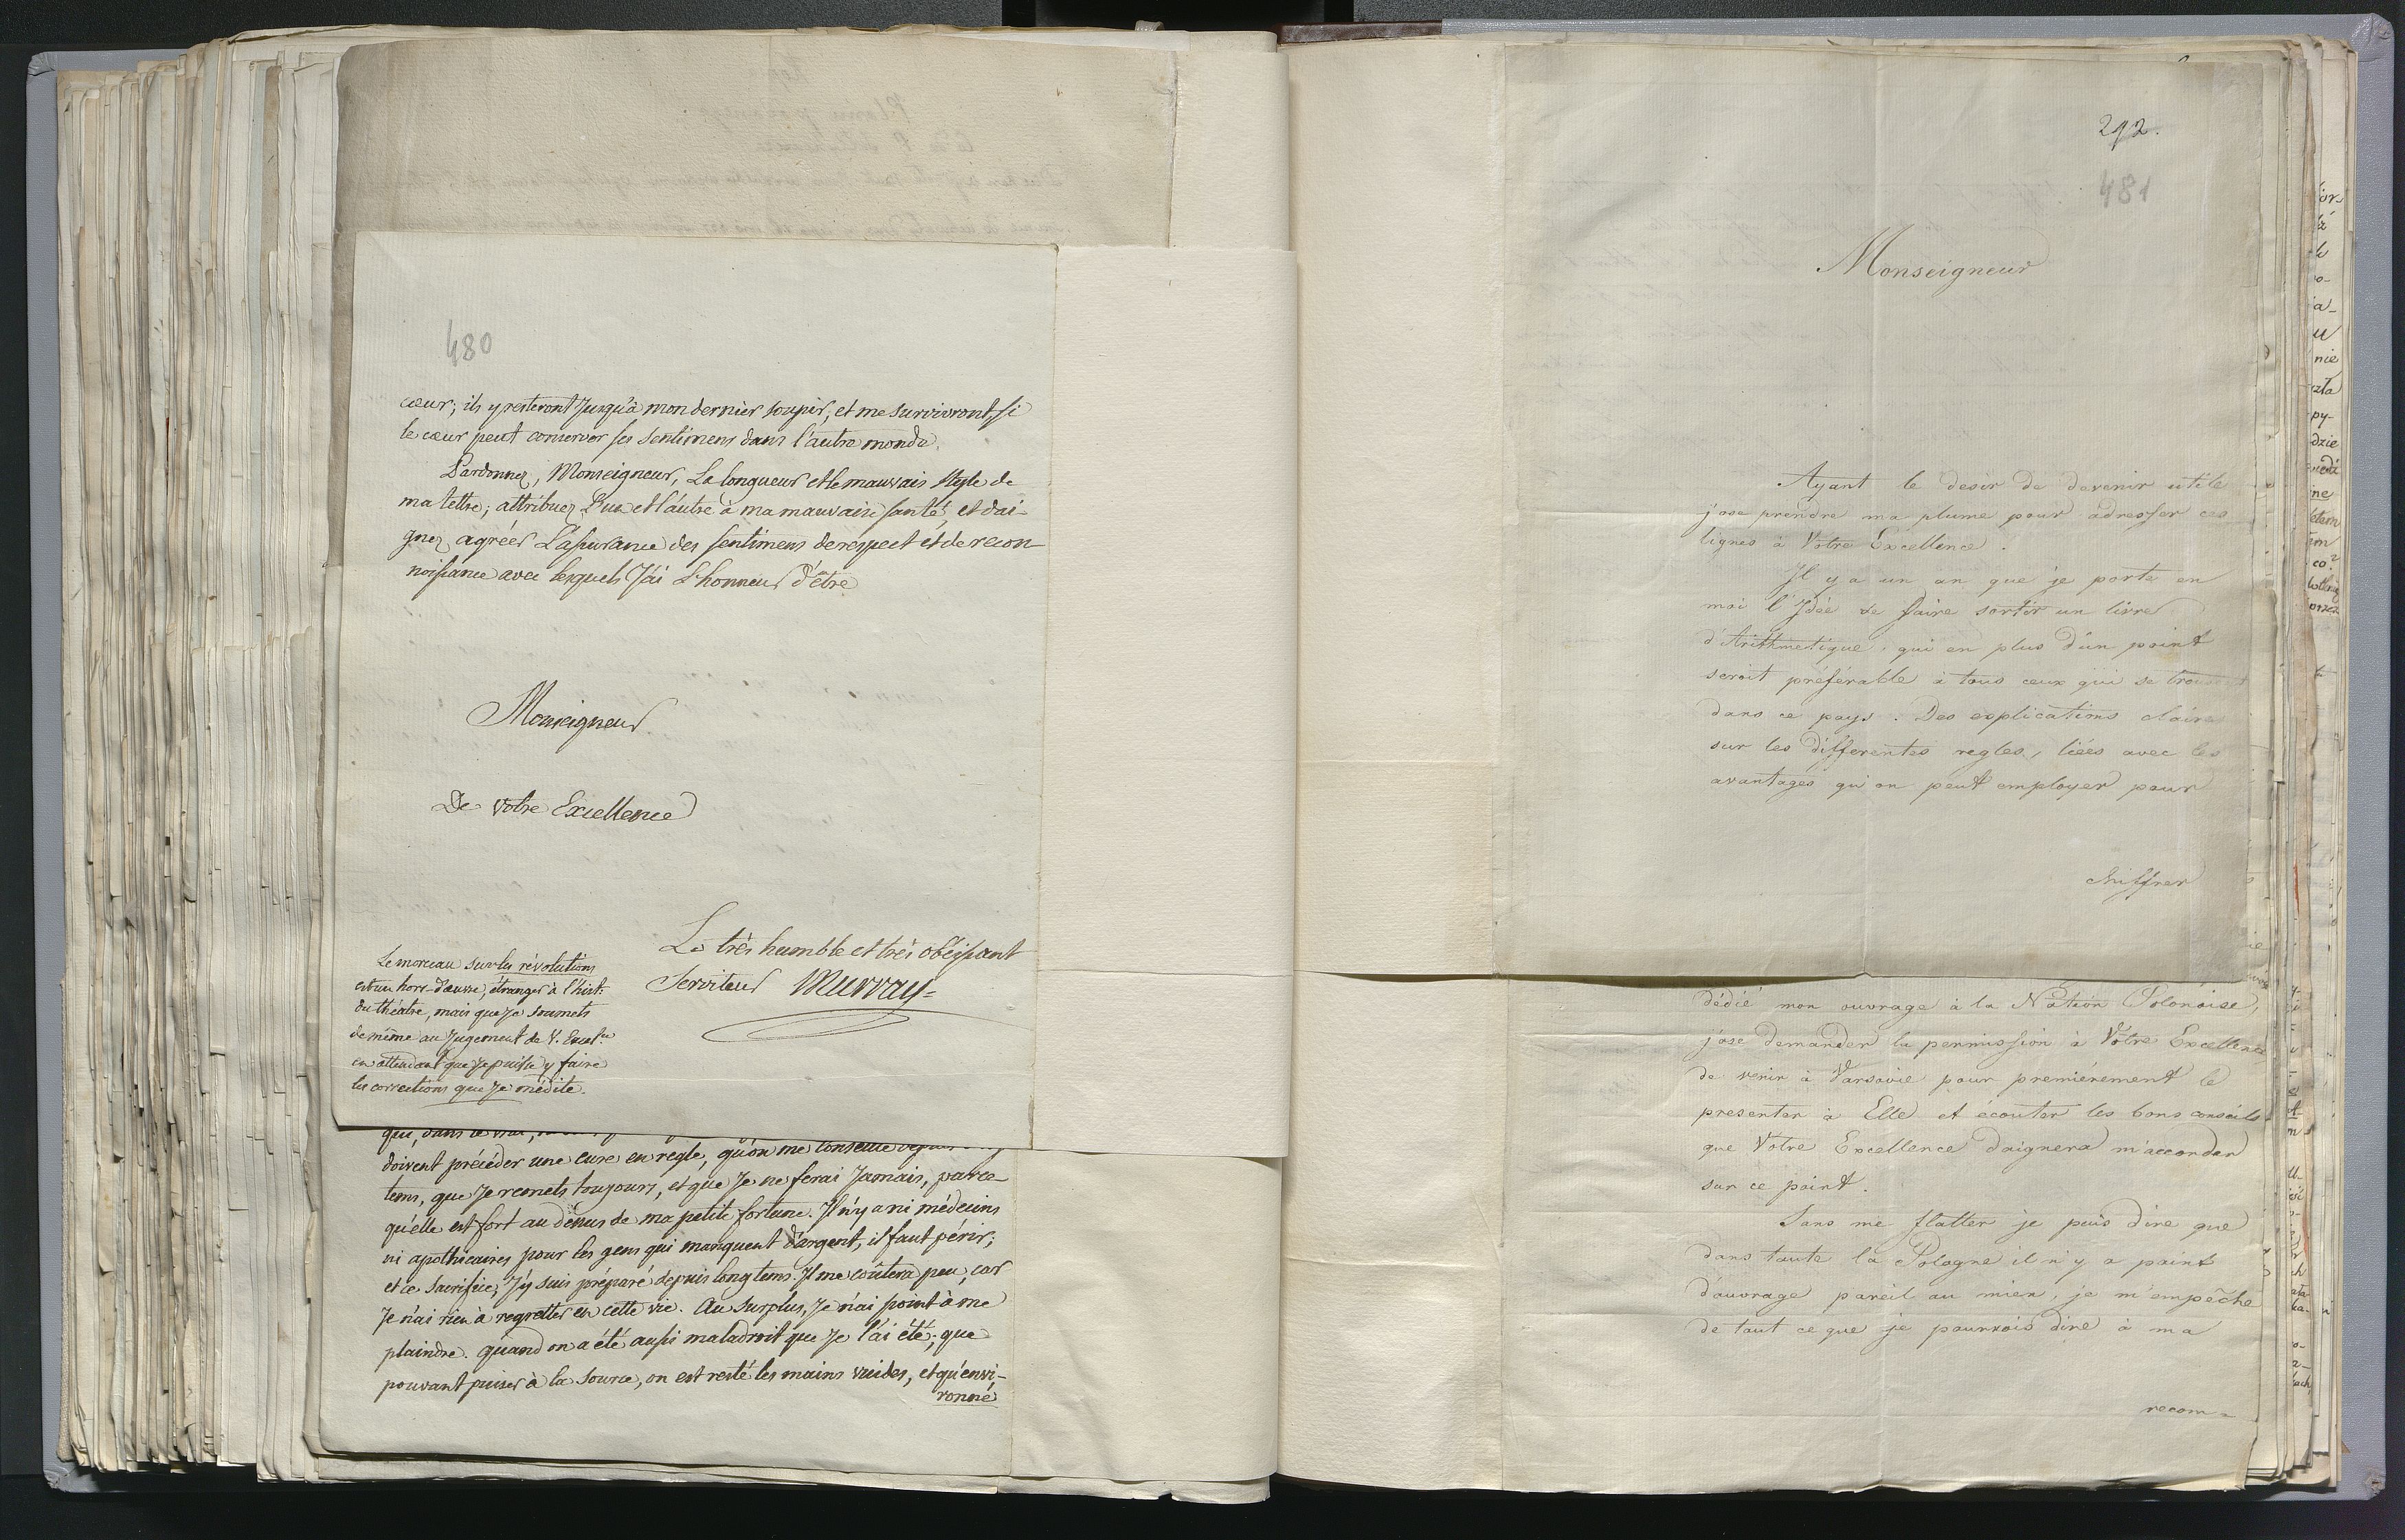 480
cœur; ils y resteront Jusqu'à mon dernier soupir, et me survivront, si
le cœur peut conserver ses sentimens dans l'autre monde.
Pardonnez, Monseigneur, La longueur et le mauvais style de
ma lettre; attribuez L'un et l'autre à ma mauvaise santé, et dai-
gnez agréer L'assurance des sentimens de respect et de recon-
noissance avec lesquels J'ai L'honneur d'être
Monseigneur
De Votre Excellence
Le très humble et très obéissant
Serviteur Murray=
Le morceau sur les révolutions
est un hors-d'œuvre, étranger à l'hist:
du théâtre, mais que je soumets
de même au Jugement de V. Excel.ce
en attendant que Je puisse y faire
les corrections que Je médite.
qui, dans le vrai,
doivent précéder une cure en regle, qu'on me conseille depuis
tems, que Je remets toujours, et que Je ne ferai Jamais, parce-
qu'elle est fort au dessus de ma petite fortune. Il n'y a ni médecins
ni apothicaires pour les gens qui manquent d'argent, il faut périr;
et ce sacrifice, J'y suis préparé depuis longtems. Il me coûtera peu, car
Je n'ai rien à regretter en cette vie. Au surplus, Je n'ai point à me
plaindre. quand on a été aussi maladroit que Je l'ai été; que
pouvant puiser à la source, on est resté les mains vuides, et qu'envi-
ronné
292.
481
Monseigneur
Ayant le desir de devenir utile
j'ose prendre ma plume pour adresser ces
lignes à Votre Excellence.
Il y a un an que je porte en
moi l'Idée de faire sortir un livre
d'Arithmetique, qui en plus d'un point
seroit préférable à tous ceux qui se trouvent
dans ce pays. Des explications claires
sur les differentes regles, liées avec les
avantages qu'on peut employer pour
chiffrer
dédié mon ouvrage à la Nation Polonoise,
j'ose demander la permission à Votre Excellence
de venir à Varsovie pour premiérement le
presenter à Elle et écouter les bons conseils
que Votre Excellence daignera m'accorder
sur ce point.
Sans me flatter je puis dire que
dans toute la Pologne il n'y a point
d'ouvrage pareil au mien, je m'empêche
de tout ce que je pourrois dire à ma
recom=